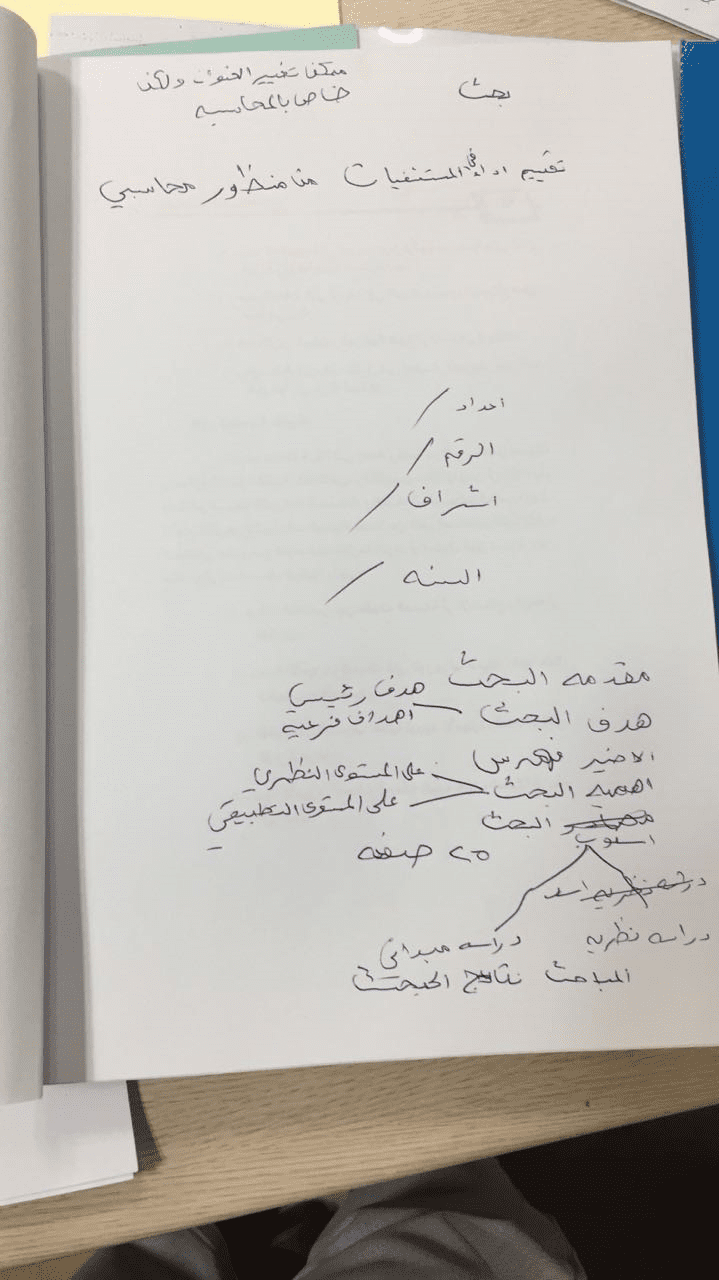 بحث
ممكن تغيير العنوان ولكن
خاص بالمحاسبه
تقييم اداء في المستشفيات من منظور محاسبي
اعداد /
الرقم /
اشراف /
السنه /
مقدمه البحث
هدف البحث هدف رئيسي
اهداف فرعية
الاخير فهرس
اهميه البحث على المستوى النظري
على المستوى التطبيقي
مصادر البحث
اسلوب
٢٥ صفحه
دراسه نظريه
دراسه نظريه
دراسه ميداني
المباحث نتائج البحث